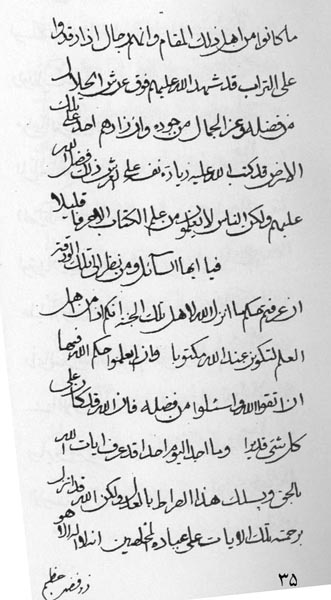 ما كانوا من اهل ذلك المقام وانهم رجال اذا رقدوا
على التراب قد شهد الله عليهم فوق عرش الجلال
من فضله وعز الجمال من جوده وان زارهم احد على تلك
الارض قد كتب الله عليه زيارة نفسه على العرش ذلك فضل الله
عليهم ولكن الناس لا يعلمون من علم الكتاب الا حرفا قليلا
فيا ايها السائل ومن نظر الى تلك الورقة
ان عرفتم حكم ما انزل الله لاهل تلك الجنة انكم انتم من اهل
العلم لتكونن عند الله مكتوبا وان لم تعلموا حكم الله فيها
ان اتقوا الله واسئلوا من فضله فان الله قد كان على
كل شئ قديرا وما احد اليوم احدا قد عرف ايات الله
بالحق ويسلك هذا الصراط بالعدل ولكن الله قد انزل
برحمته تلك الايات على عباده المخلصين انه لا اله الا هو
ذو فضل عظيم
٣٥